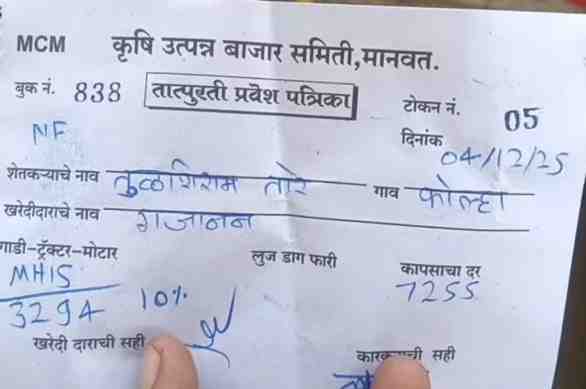 MCM कृषि उत्पन्न बाजार समिती,मानवत.
बुक नं. 838 तात्पुरती प्रवेश पत्रिका टोकन नं. 05
NF दिनांक 04/12/25
शेतकऱ्याचे नाव तुळशिराम तोरे गाव कोल्हा
खरेदीदाराचे नाव गजानन
गाडी-ट्रॅक्टर-मोटार लुज डाग फारी कापसाचा दर
MH15 7255
3294 10%
खरेदी दाराची सही सही